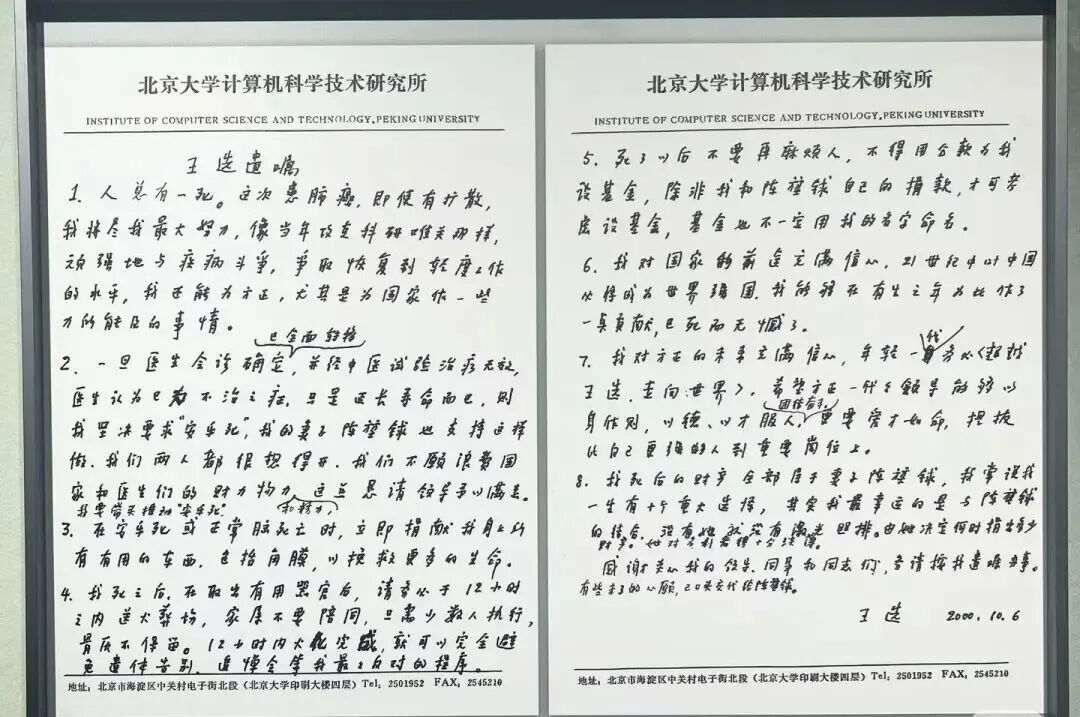 北京大学计算机科学技术研究所
INSTITUTE OF COMPUTER SCIENCE AND TECHNOLOGY, PEKING UNIVERSITY
王选遗嘱
1. 人总有一死。这次患肺癌,即使有扩散,
我将尽我最大努力,像当年攻克科研难关那样,
顽强地与疾病斗争,争取恢复到轻度工作
的水平,我还能为方正,尤其是为国家作一些
力所能及的事情。
已全面转移
2. 一旦医生会诊确定,并经中医试验治疗无效,
医生认为已为不治之症,只是延长寿命而已,则
我坚决要求"安乐死",我的妻子陈堃銶也支持这样
做,我们两人都很想得开,我们不愿浪费国
家和医生们的财力物力,这点恳请领导予以满足。
我要带头推动"安乐死"
和精力,
3. 在安乐死或正常脑死亡时,立即捐献我身上所
有有用的东西,包括角膜,以挽救更多的生命。
4. 我死之后,在取出有用器官后,请务必于12小时
之内送火葬场,家属不要陪同,只需少数人执行,
骨灰不保留。12小时内火化完成,就可以完全避
免遗体告别、追悼会等我最反对的程序。
地址:北京市海淀区中关村电子街北段(北京大学印刷大楼四层)Tel:2501952 FAX:2545210
北京大学计算机科学技术研究所
INSTITUTE OF COMPUTER SCIENCE AND TECHNOLOGY, PEKING UNIVERSITY
5. 死了以后不要再麻烦人,不得用公款为我
设基金,除非我和陈堃銶自己的捐款,才可考
虑设基金,基金也不一定用我的名字命名。
6. 我对国家的前途充满信心,21世纪中叶中国
必将成为世界强国,我能够在有生之年为此作了
一点贡献,已死而无憾了。
代
7. 我对方正的未来充满信心,年轻一务必"超越
王选,走向世界",希望方正一代代领导能够以
团结奋斗,
身作则,以德、以才服人,更要爱才如命,提拔
比自己更强的人到重要岗位上。
8. 我死后的财产全部属于妻子陈堃銶,我常说我
一生有十个重大选择,其实我最幸运的是与陈堃銶
的结合,没有她就没有激光照排。由她决定何时捐出多少
财产。她对名利看得十分淡薄。
感谢关心我的领导、同事和同志们,务请按我遗嘱办事。
有些未了的心愿,已口头交代给陈堃銶。
王选 2000.10.6
地址:北京市海淀区中关村电子街北段(北京大学印刷大楼四层)Tel:2501952 FAX:2545210